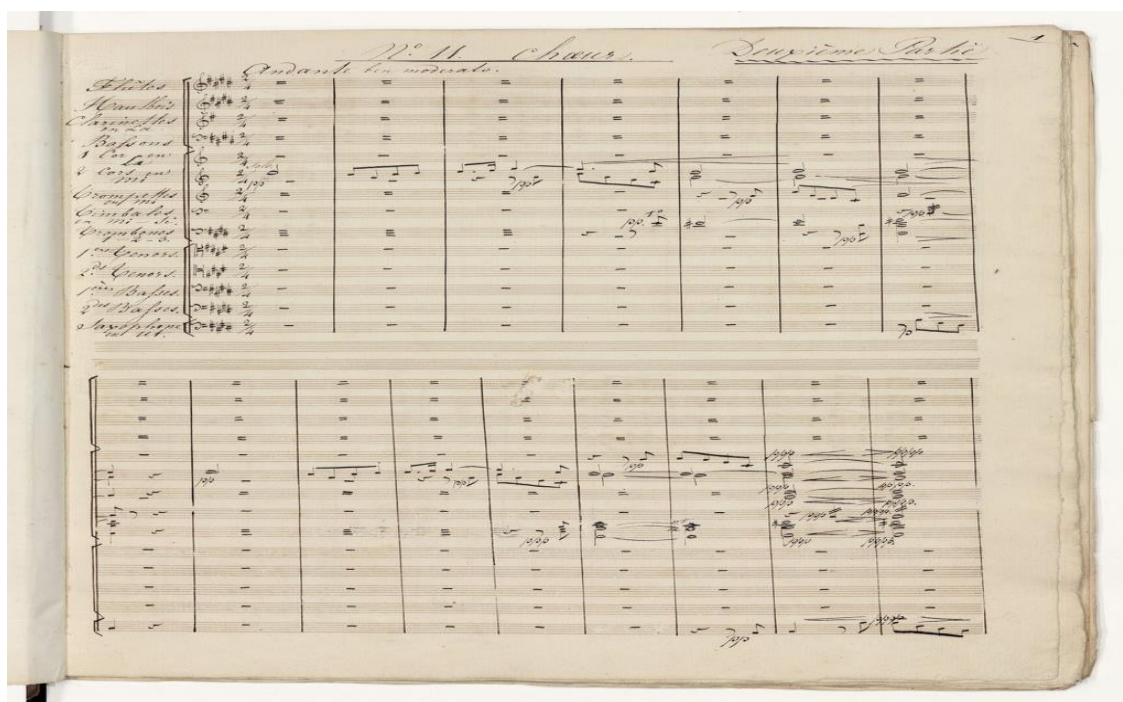 1
N.º 11. Chœur. Deuxième Partie
Andante ben moderato.
Flûtes
Hautbois
Clarinettes
en La
Bassons
1 Cor en
La
2 Cors en
mi
Solo
pp
pp
Trompettes
en mi
pp
Timbales
mi - Si.
pp
Trombones
1-2-3.
pp.
pp
1ers Tenors.
2ds Tenors.
1ères Basses.
2des Basses.
Saxophone
en ut.
p
pp
pp
pp
pppp
pppp
pppp
pppp.
pppp
pppp
ppp
pppp
pppp
ppp
pppp